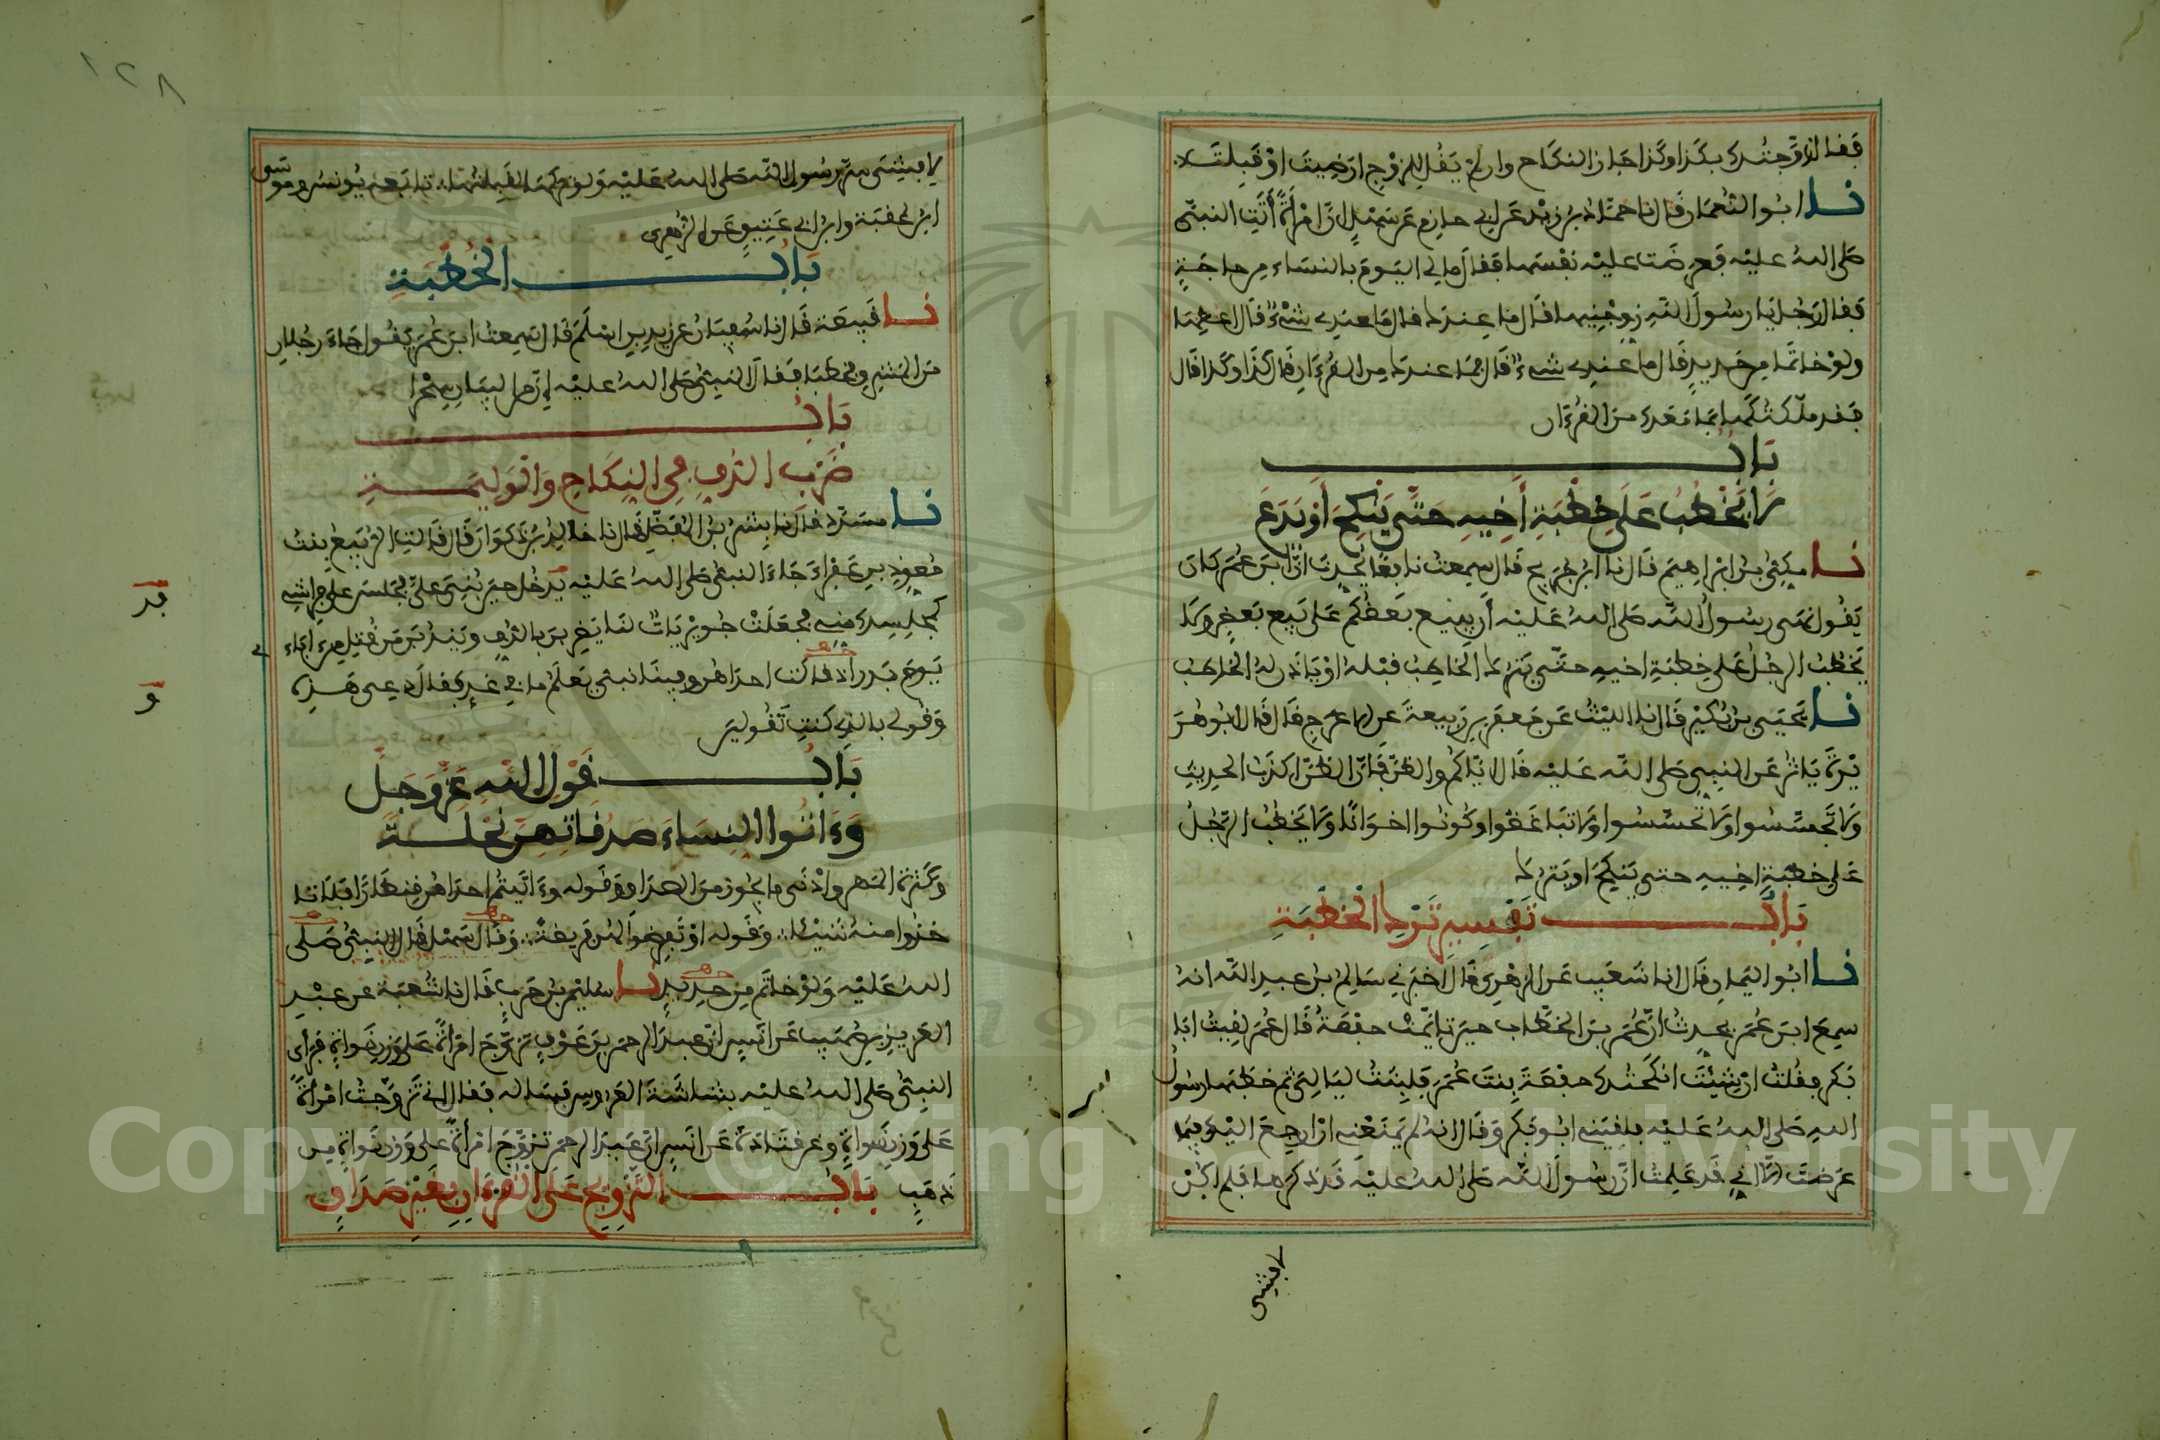 فقال زوجتك بكذا وكذا جاز النكاح وإن لم يقل للزوج ارضيت او قبلت
نا ابو النعمان قال نا حماد بن زيد عن ابي حازم عن سهل ان امرأة أتت النبي
صلى الله عليه فعرضت عليه نفسها فقال ما لي اليوم بالنساء من حاجة
فقال رجل يا رسول الله زوجنيها قال ما عندك قال ما عندي شيء قال اعطها
ولو خاتما من حديد قال ما عندي شيء قال فما عندك من القرءان قال كذا وكذا قال
فقد ملكتكها بما معك من القرءان
باب
لا يخطب على خطبة أخيه حتى ينكح أو يدع
نا مكي بن ابراهيم قال نا ابن جريج قال سمعت نافعا يحدث ان ابن عمر كان
يقول نهى رسول الله صلى الله عليه أن يبيع بعضكم على بيع بعض ولا
يخطب الرجل على خطبة اخيه حتى يترك الخاطب قبله او ياذن له الخاطب
نا يحيى بن بكير قال نا الليث عن جعفر بن ربيعة عن الاعرج قال قال ابو هر
يرة ياثر عن النبي صلى الله عليه قال اياكم والظن فان الظن اكذب الحديث
ولا تجسسوا ولا تحسسوا ولا تباغضوا وكونوا اخوانا ولا يخطب الرجل
على خطبة اخيه حتى ينكح او يترك
باب تفسير ترك الخطبة
نا ابو اليمان قال انا شعيب عن الزهري قال اخبرني سالم بن عبد الله انه
سمع ابن عمر يحدث ان عمر بن الخطاب حين تايمت حفصة قال عمر لقيت ابا
بكر فقلت ان شئت انكحتك حفصة بنت عمر فلبثت ليالي ثم خطبها رسول
الله صلى الله عليه فلقيني ابو بكر وقال انه لم يمنعني ان ارجع اليك فيما
عرضت الا اني قد علمت ان رسول الله صلى الله عليه قد ذكرها فلم اكن
لافشي
١٢٨
لافشي سر رسول الله صلى الله عليه ولو تركها لقبلتها تابعه يونس وموسى
ابن عقبة وابن ابي عتيق عن الزهري
باب الخطبة
نا قبيصة قال نا سفيان عن زيد بن اسلم قال سمعت ابن عمر يقول جاء رجلان
من المشرق فخطبا فقال النبي صلى الله عليه ان من البيان سحرا
باب
ضرب الدف في النكاح والوليمة
نا مسدد قال نا بشر بن المفضل قال نا خالد بن ذكوان قال قالت الربيع بنت
معوذ بن عفراء جاء النبي صلى الله عليه يدخل حين بني علي فجلس على فراشي
كمجلسك مني فجعلت جويريات لنا يضربن بالدف ويندبن من قتل من ءابائي
يوم بدر اذ قالت احداهن وفينا نبي يعلم ما في غد فقال دعي هذه
وقولي بالذي كنت تقولين
باب قول الله عز وجل
وءاتوا النساء صدقاتهن نحلة
وكثرة المهر وادنى ما يجوز من الصداق وقوله وءاتيتم احداهن قنطارا فلا تا
خذوا منه شيئا وقوله او تفرضوا لهن فريضة وقال سهل قال النبي صلى
الله عليه ولو خاتم من حديد نا سليمن بن حرب قال نا شعبة عن عبد
العزيز بن صهيب عن انس ان عبد الرحمن بن عوف تزوج امرأة على وزن نواة فرأى
النبي صلى الله عليه بشاشة العروس فساله فقال اني تزوجت امرأة
على وزن نواة وعن قتادة عن انس ان عبد الرحمن تزوج امرأة على وزن نواة من
ذهب باب التزويج على القرءان بغير صداق